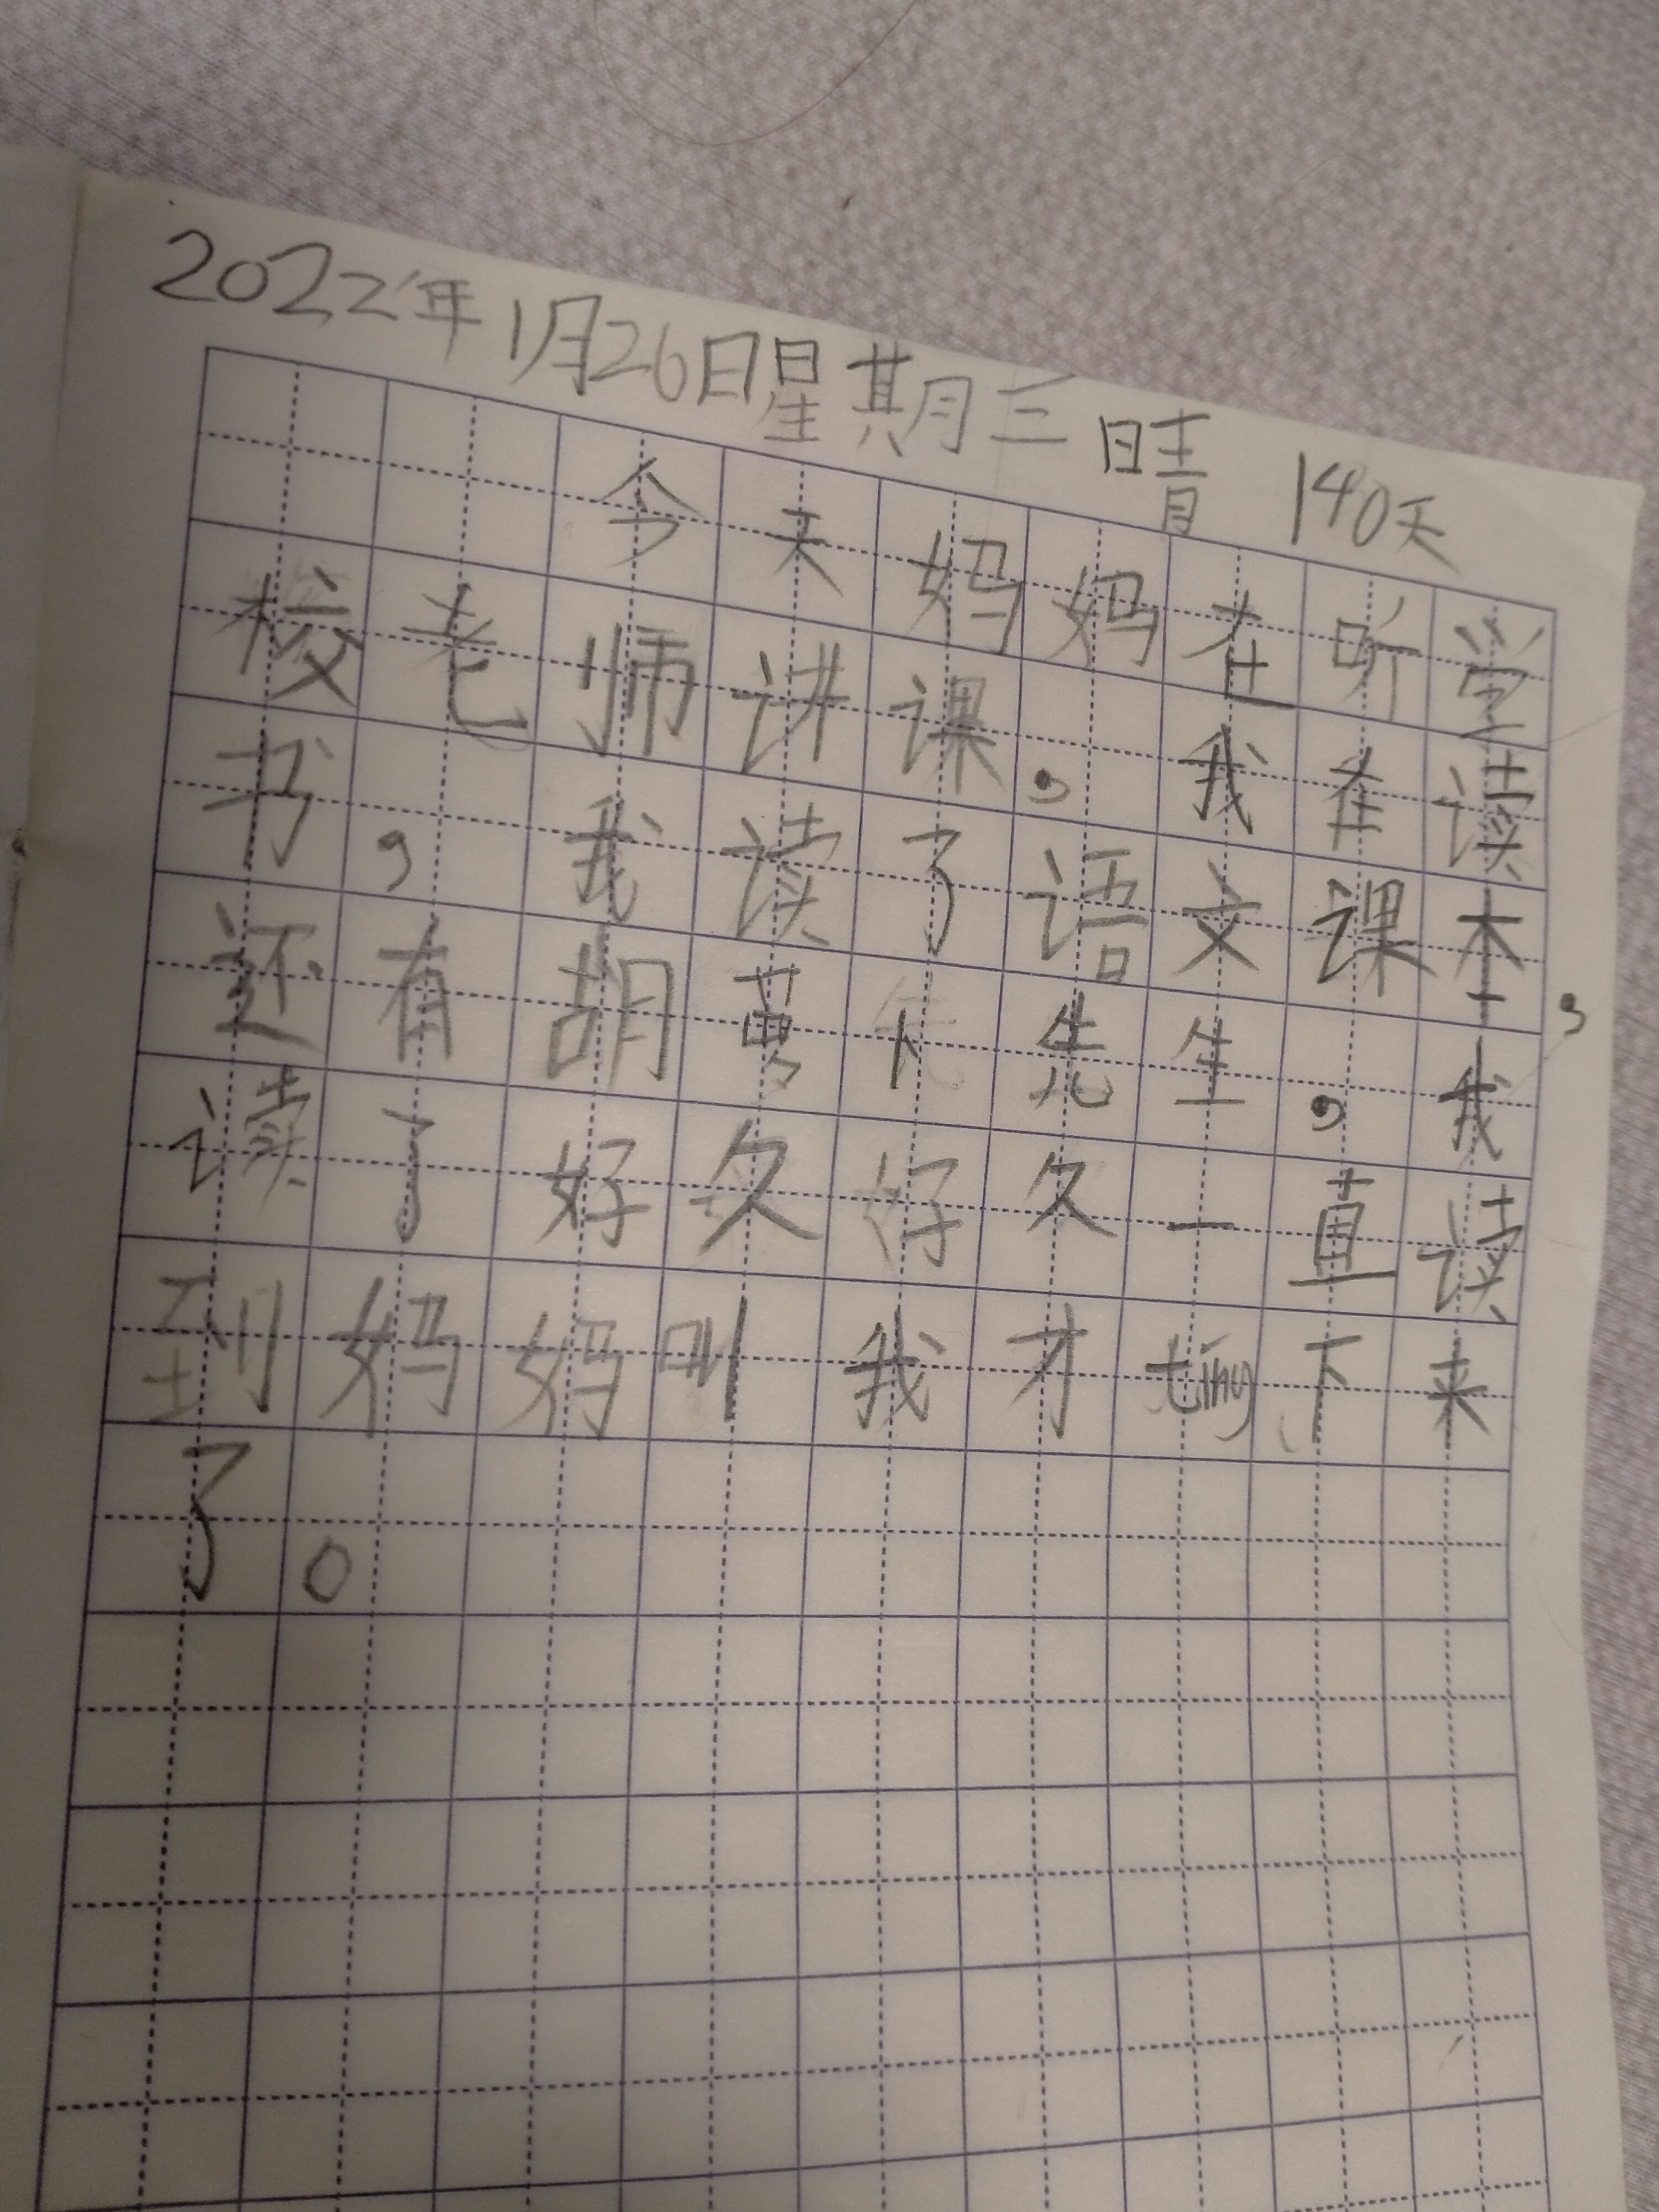 2022年1月26日星期三晴 140天
今天妈妈在听学
校老师讲课,我在读
书,我读了语文课本,
还有胡萝卜先生,我
读了好久好久一直读
到妈妈叫我才tíng下来
了。